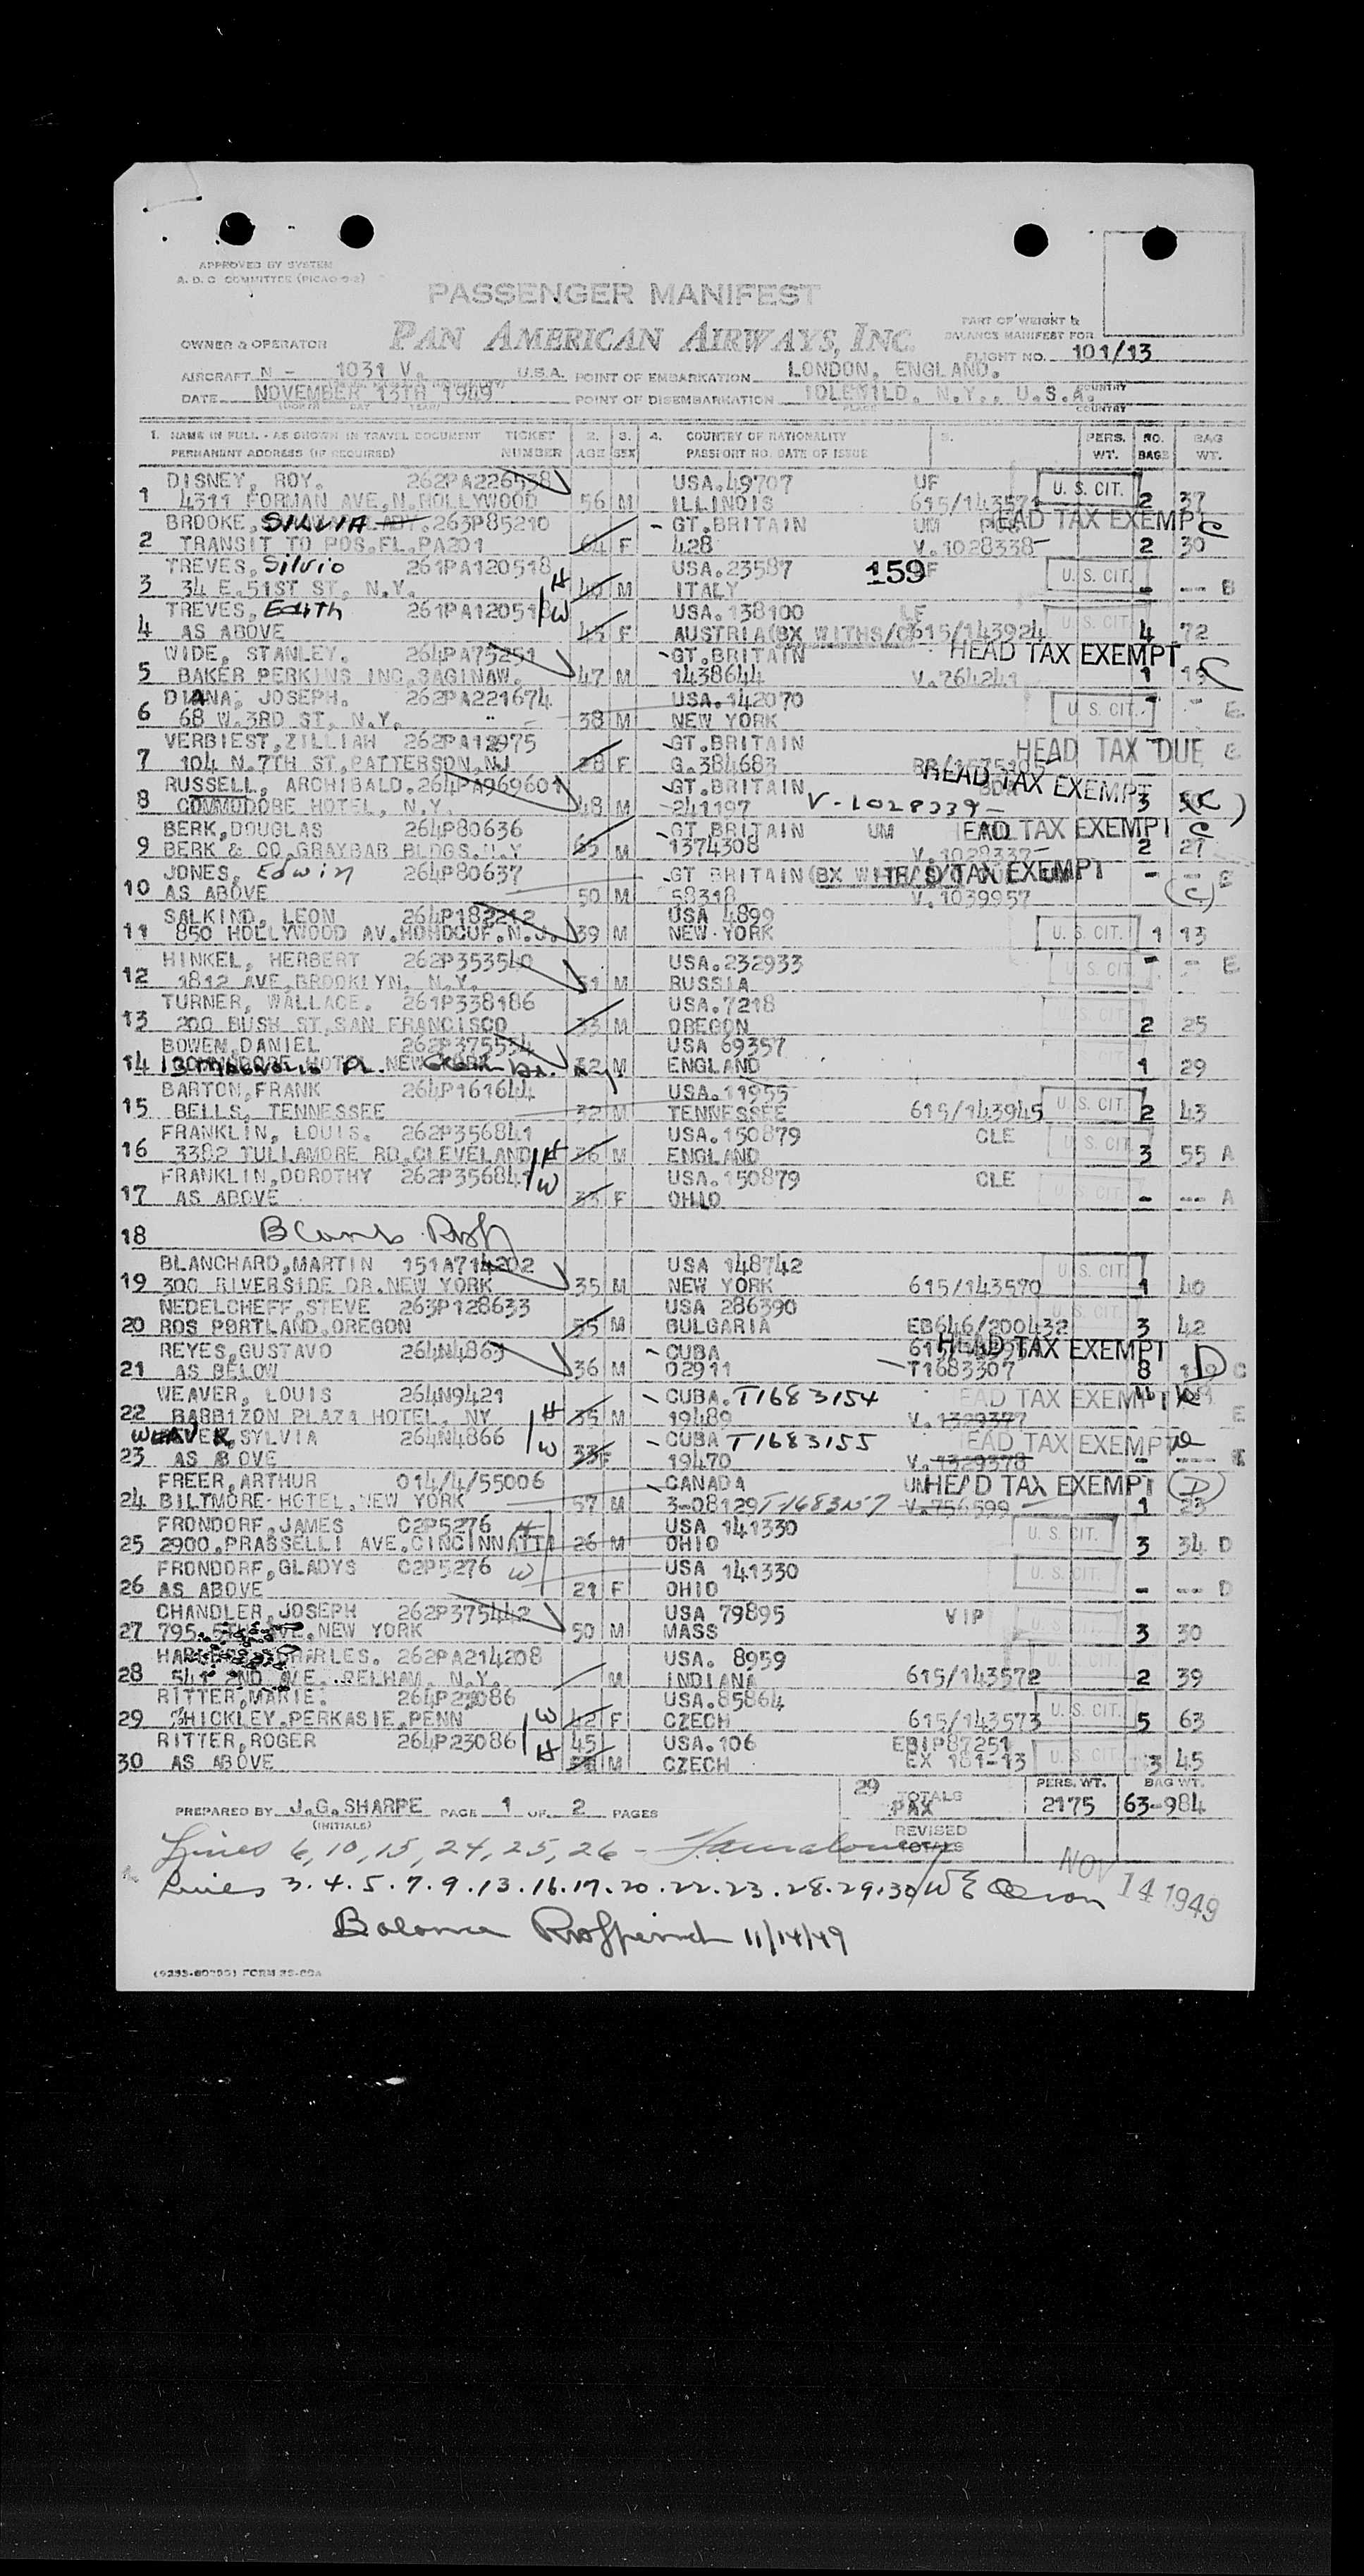 APPROVED BY SYSTEM
A. D. C. COMMITTEE (PICAO 9-2)
PASSENGER MANIFEST
PAN AMERICAN AIRWAYS, INC.
PART OF WEIGHT &
BALANCE MANIFEST FOR
OWNER & OPERATOR
FLIGHT NO. 101/13
AIRCRAFT N - 1031 V. U.S.A. POINT OF EMBARKATION LONDON, ENGLAND.
COUNTRY
DATE NOVEMBER 13TH 1949 POINT OF DISEMBARKATION IDLEWILD, N.Y., U.S.A.
PLACE COUNTRY
1. NAME IN FULL - AS SHOWN IN TRAVEL DOCUMENT TICKET 2. 3. 4. COUNTRY OF NATIONALITY 5. PERS. NO. BAG
PERMANENT ADDRESS (IF REQUIRED) NUMBER AGE SEX PASSPORT NO. DATE OF ISSUE WT. BAGS WT.
DISNEY, ROY. 262PA226538 USA.49707 UF U. S. CIT.
1 4311 FORMAN AVE,N.HOLLYWOOD 56 M ILLINOIS 615/143571 2 37
BROOKE, SILVIA 263P85210 GT.BRITAIN UM HEAD TAX EXEMPT C
2 TRANSIT TO POS.FL.PA201 64 F 428 V.1028338 2 30
TREVES, Silvio 261PA120518 USA.23587 159 F U. S. CIT.
3 34 E.51ST ST, N.Y. H 40 M ITALY - --- B
TREVES, Edith 261PA120518 W USA.138100 UF U. S. CIT.
4 AS ABOVE 45 F AUSTRIA(BX WITHS/O 615/143924 4 72
WIDE, STANLEY. 264PA75251 GT.BRITAIN HEAD TAX EXEMPT
5 BAKER PERKINS INC,SAGINAW. 47 M 1438644 V.764241 1 19 C
DIANA, JOSEPH. 262PA221674 USA.142070 U. S. CIT.
6 68 W.3RD ST, N.Y. 38 M NEW YORK E
VERBIEST,ZILLIAH 262PA12975 GT.BRITAIN HEAD TAX DUE
7 104 N.7TH ST,PATTERSON,NJ 28 F G.384683
RUSSELL, ARCHIBALD.264PA969601 GT.BRITAIN HEAD TAX EXEMPT
8 COMMODORE HOTEL, N.Y. 48 M 241197 V-1028339 3 (C)
BERK,DOUGLAS 264P80636 GT BRITAIN UM HEAD TAX EXEMPT C
9 BERK & CO,GRAYBAR BLDGS.N.Y 65 M 1374308 V.1028337 2 27
JONES, Edwin 264P80637 GT BRITAIN(BX WITH S/O HEAD TAX EXEMPT - -- E
10 AS ABOVE 50 M 58318 V.1039957 (C)
SALKIND, LEON 264P182212 USA 4899
11 850 HOLLYWOOD AV.HOHOCUF.N.J. 39 M NEW YORK U. S. CIT. 1 13
HINKEL, HERBERT 262P353540 USA.232933 - -- E
12 1812 AVE,BROOKLYN, N.Y. 51 M RUSSIA U. S. CIT.
TURNER, WALLACE. 261P338186 USA.7218
13 200 BUSH ST,SAN FRANCISCO 33 M OREGON 2 25
BOWEM,DANIEL 262P375554 USA 69357
14 32 M ENGLAND 1 29
BARTON,FRANK 264P161644 USA.11955
15 BELLS, TENNESSEE 32 M TENNESSEE 615/143945 U. S. CIT. 2 43
FRANKLIN, LOUIS. 262P356841 USA.150879 CLE U. S. CIT.
16 3382 TULLAMORE RD,CLEVELAND H 36 M ENGLAND 3 55 A
FRANKLIN,DOROTHY 262P356841 W USA.150879 CLE
17 AS ABOVE 33 F OHIO U. S. CIT. - --- A
18
BLANCHARD,MARTIN 151A714202 USA 148742 U. S. CIT.
19 300 RIVERSIDE DR.NEW YORK 35 M NEW YORK 615/143570 1 40
NEDELCHEFF,STEVE 263P128633 USA 286390 U. S. CIT.
20 ROS PORTLAND,OREGON 55 M BULGARIA EB646/200432 3 42
REYES,GUSTAVO 264N4865 CUBA HEAD TAX EXEMPT D
21 AS BELOW 36 M 02911 T1683307 8 C
WEAVER, LOUIS 264N9421 CUBA. T1683154 HEAD TAX EXEMPT
22 BARBIZON PLAZA HOTEL, NY H 35 M 19489 V.1329377 E
WEAVER,SYLVIA 264N4866 W CUBA T1683155 HEAD TAX EXEMPT D
23 AS ABOVE 33 F 19470 V.1329378 - ---
FREER,ARTHUR 014/4/55006 CANADA UM HEAD TAX EXEMPT (D)
24 BILTMORE HOTEL,NEW YORK 57 M 3-08129 T-1683157 V.756599 1 23
FRONDORF,JAMES C2P5276 H USA 141330
25 2900,PRASSELLI AVE,CINCINNATTI 26 M OHIO U. S. CIT. 3 34 D
FRONDORF,GLADYS C2P5276 W USA 141330
26 AS ABOVE 21 F OHIO U. S. CIT. - --- D
CHANDLER,JOSEPH 262P375442 USA 79895 VIP
27 795, 5TH AVE,NEW YORK 50 M MASS U. S. CIT. 3 30
CHARLES. 262PA214208 USA. 8959
28 541 2ND AVE. PELHAM, N.Y. M INDIANA 615/143572 2 39
RITTER,MARIE. 264P23086 USA.85864
29 %HICKLEY,PERKASIE,PENN W 42 F CZECH 615/143573 U. S. CIT. 5 63
RITTER,ROGER 264P23086 H 45 USA.106 EBIP87251
30 AS ABOVE M CZECH EX 181-13 U. S. CIT. 3 45
29 TOTALS PERS. WT. BAG WT.
PREPARED BY J.G.SHARPE PAGE 1 OF 2 PAGES PAX 2175 63-984
(INITIALS) REVISED
TOTALS
Lines 6, 10, 15, 24, 25, 26 -
NOV 14 1949
Lines 3.4.5.7.9.13.16.17.20.22.23.28.29.30
Balance 11/14/49